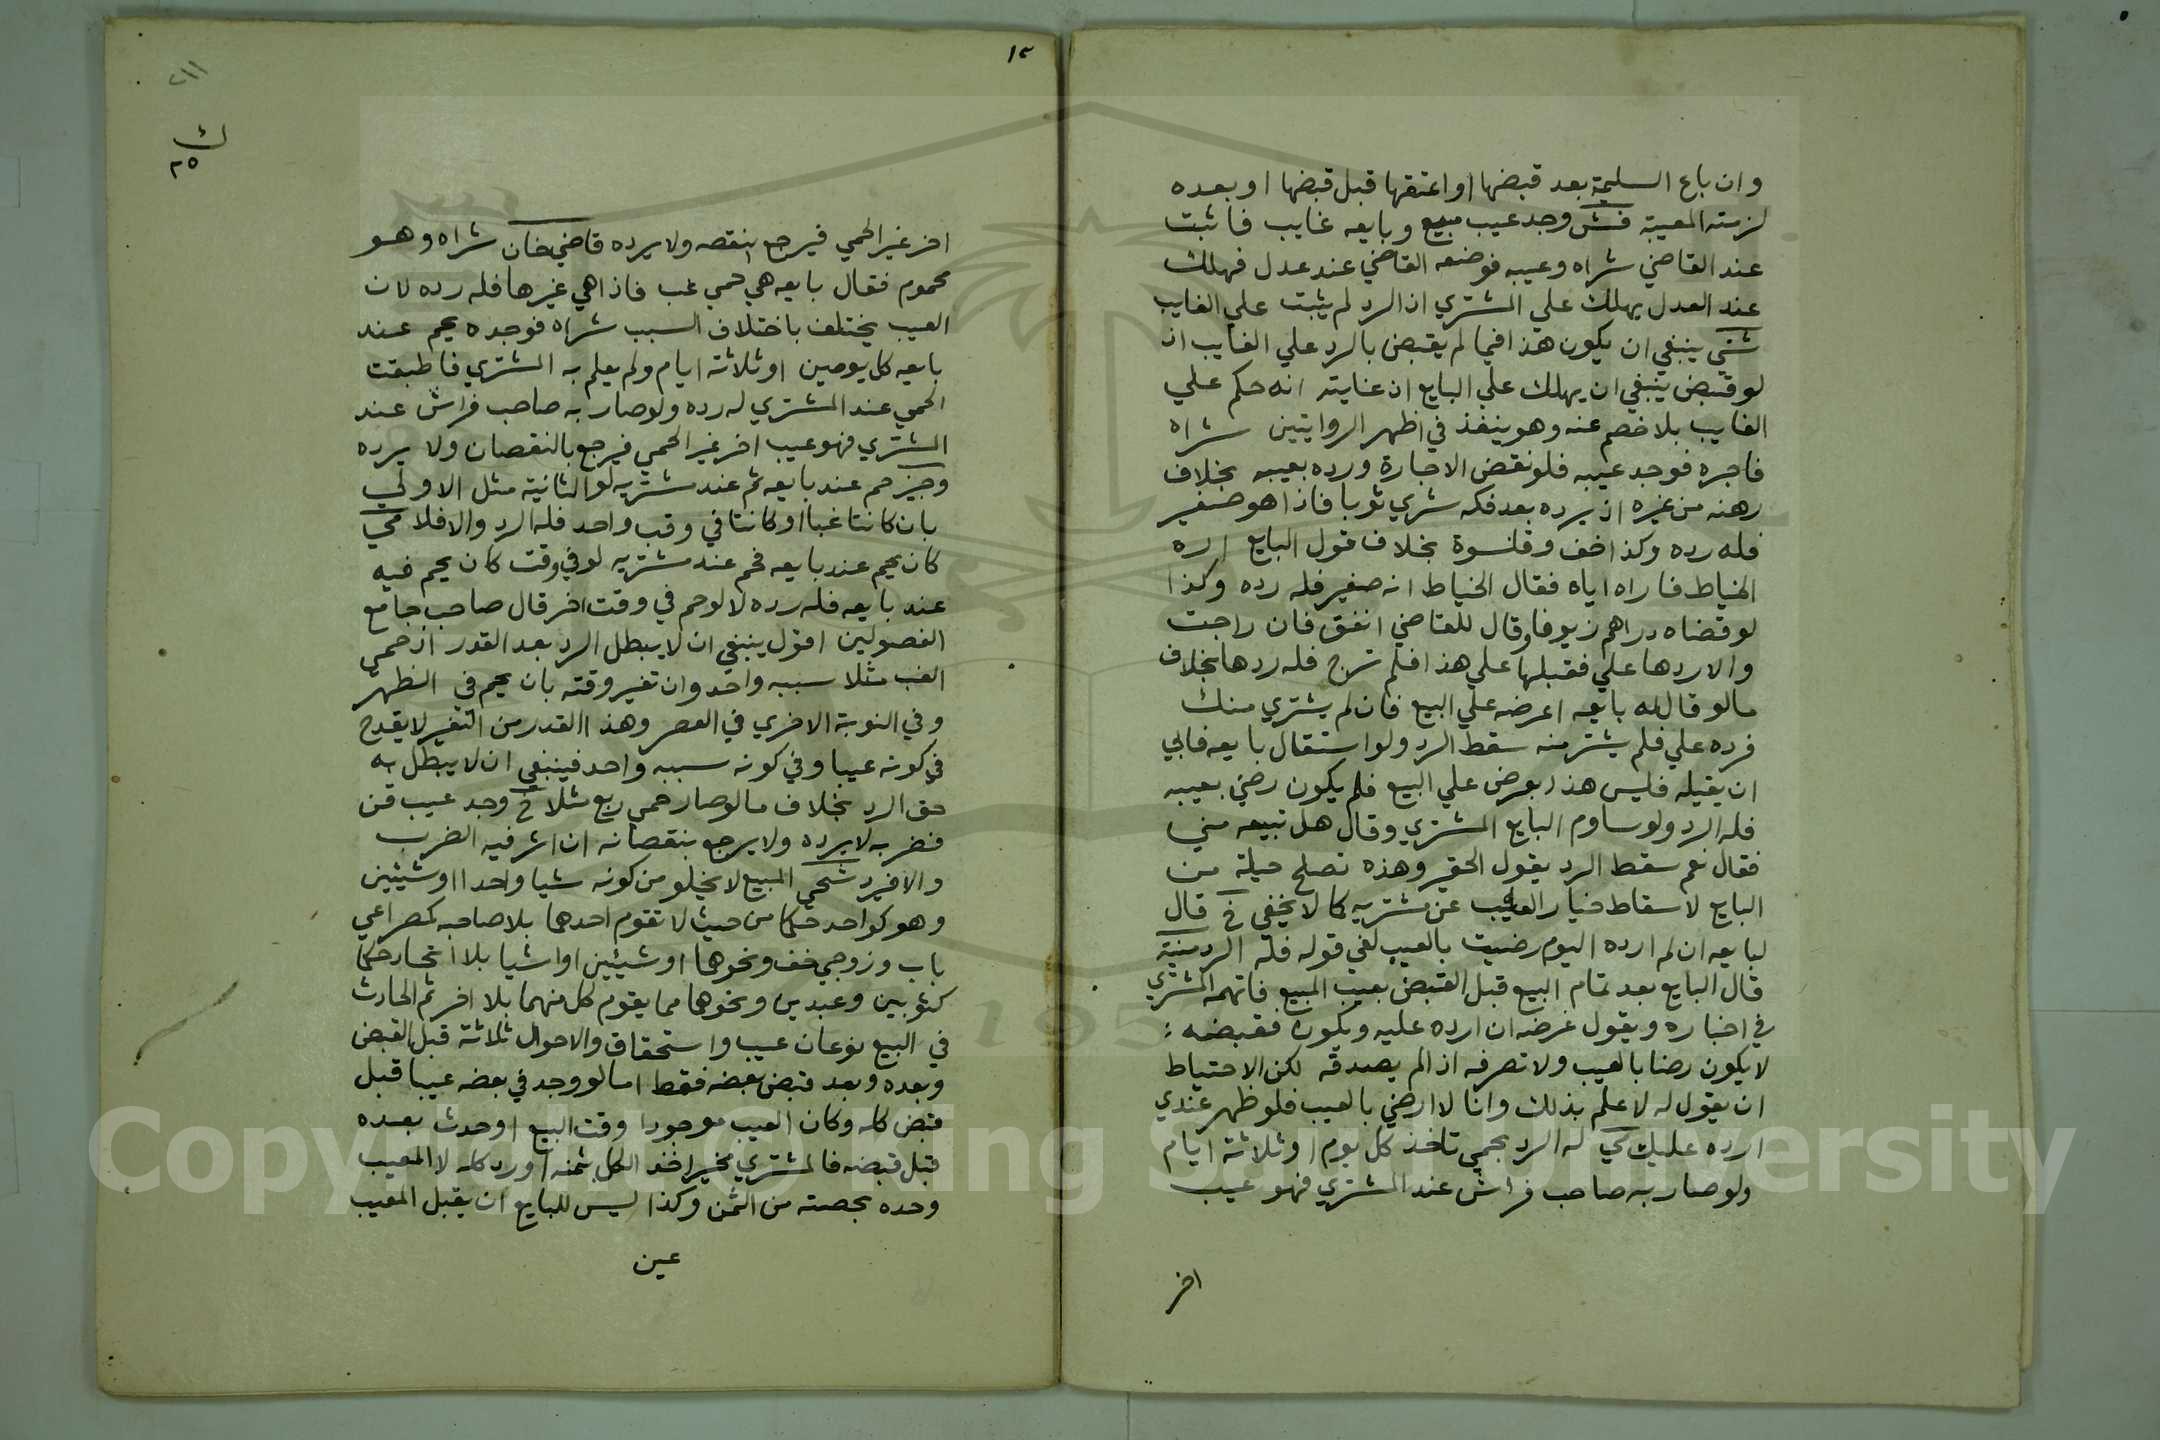 وان باع السليمة بعد قبضها او اعتقها قبل قبضها او بعده
لزمته المعيبة فش وجد عيب مبيع وبايعه غايب فاثبت
عند القاضي شراه وعيبه فوضعه القاضي عند عدل فهلك
عند العدل يهلك علي المشتري اذ الرد لم يثبت علي الغايب
شتي ينبغي ان يكون هذا فيما لم يقبض بالرد علي الغايب اذ
لو قبض ينبغي ان يهلك علي البايع اذ غايته انه حكم علي
الغايب بلا خصم عنه وهو ينفذ في اظهر الروايتين شراه
فاجره فوجد عيبه فلو نقض الاجارة ورده بعيبه بخلاف
رهنه من غيره اذ يرده بعد فكه شري ثوبا فاذا هو صغير
فله رده وكذا خف وقلنسوة بخلاف قول البايع اره
الخياط فاراه اياه فقال الخياط انه صغير فله رده وكذا
لو قضاه دراهم زيوفا وقال للقاضي انفق فان راجت
والا ردها علي فقبلها علي هذا فلم ترج فله ردها بخلاف
مالو قال له بايعه اعرضه علي البيع فان لم يشتري منك
فرده علي فلم يشتر منه سقط الرد ولو استقال بايعه فابي
ان يقيله فليس هذا بعرض علي البيع فلم يكون رضي بعيبه
فله الرد ولو ساوم البايع المشتري وقال هل تبيعه مني
فقال نعم سقط الرد يقول الحقير وهذه تصلح حيلة من
البايع لاسقاط خيار العيب عن مشتريه كما لا يخفي خ قال
لبايعه ان لم ارده اليوم رضيت بالعيب لغي قوله فله الرد منية
قال البايع بعد تمام البيع قبل القبض بعيب المبيع فاتهمه المشتري
في اخباره ويقول غرضه ان ارده عليه ويكون فقبضه :
لا يكون رضا بالعيب ولا تصرفه اذا لم يصدقه لكن الاحتياط
ان يقول له لا علم بذلك وانا لا ارضي بالعيب فلو ظهر عندي
ارده عليك كي له الرد بحمي تاخذ كل يوم او ثلاثة ايام
ولو صار به صاحب فراش عند المشتري فهو عيب
اخر
١٢
٢١١
ك
٢٥
اخر غير الحمي فيرجع بنقصه ولا يرده قاضي خان شراه وهو
محموم فقال بايعه هي حمي غب فاذا هي غيرها فله رده لان
العيب يختلف باختلاف السبب شراه فوجده يحم عند
بايعه كل يومين او ثلاثة ايام ولم يعلم به المشتري فاطبقت
الحمي عند المشتري له رده ولو صار به صاحب فراش عند
المشتري فهو عيب اخر غير الحمي فيرجع بالنقصان ولا يرده
وجيز حم عند بايعه ثم عند مشتريه لو الثانية مثل الاولي
بان كانتا غبا او كانتا في وقت واحد فله الرد والا فلا كي
كان يحم عند بايعه فحم عند مشتريه لو في وقت كان يحم فيه
عند بايعه فله رده لا لو حم في وقت اخر قال صاحب جامع
الفصولين اقول ينبغي ان لا يبطل الرد بعد القدر اذ حمي
الغب مثلا سببه واحد وان تغير وقته بان يحم في الظهر
وفي النوبة الاخري في العصر وهذا القدر من التغير لا يقدح
في كونه عيبا وفي كونه سببه واحد فينبغي ان لا يبطل به
حق الرد بخلاف مالو صار حمي ربع مثلا خ وجد عيب قن
فضربه لا يرده ولا يرجع بنقصانه ان اثر فيه الضرب
والا فيرد شحي المبيع لا يخلو من كونه شيا واحدا او شيئين
وهو كواحد حكما من حيث لا تقوم احدهما بلا صاحبه كمصراعي
باب وزوجي خف ونحوهما او شيئين او اشيا بلا اتحاد حكما
كثوبين وعبدين ونحوهما مما يقوم كل منهما بلا اخر ثم الحادث
في البيع نوعان عيب واستحقاق والاحوال ثلاثة قبل القبض
وبعده وبعد قبض بعضه فقط اما لو وجد في بعضه عيبا قبل
قبض كله وكان العيب موجودا وقت البيع او حدث بعده
قبل قبضه فالمشتري مخير اخذ الكل بثمنه او رد كله لا المعيب
وحده بحصته من الثمن وكذا ليس للبايع ان يقبل المعيب
عين
Copyright © King Saud University
1957